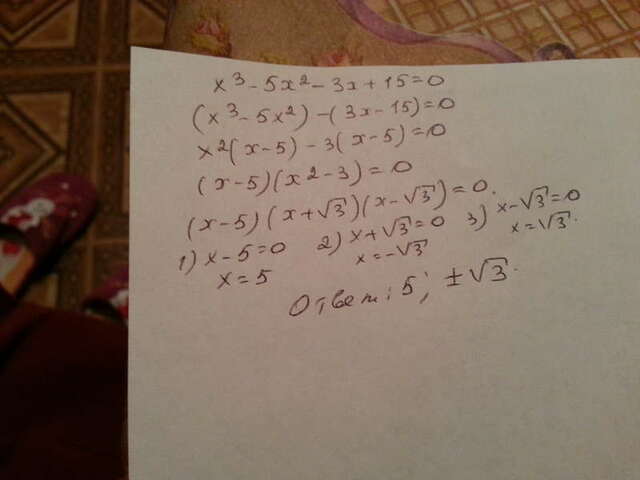 x³ - 5x² - 3x + 15 = 0
(x³ - 5x²) - (3x - 15) = 0
x²(x - 5) - 3(x - 5) = 0
(x - 5)(x² - 3) = 0
(x - 5)(x + √3)(x - √3) = 0.
1) x - 5 = 0 2) x + √3 = 0 3) x - √3 = 0
x = 5 x = -√3 x = √3.
Ответ: 5; ±√3.